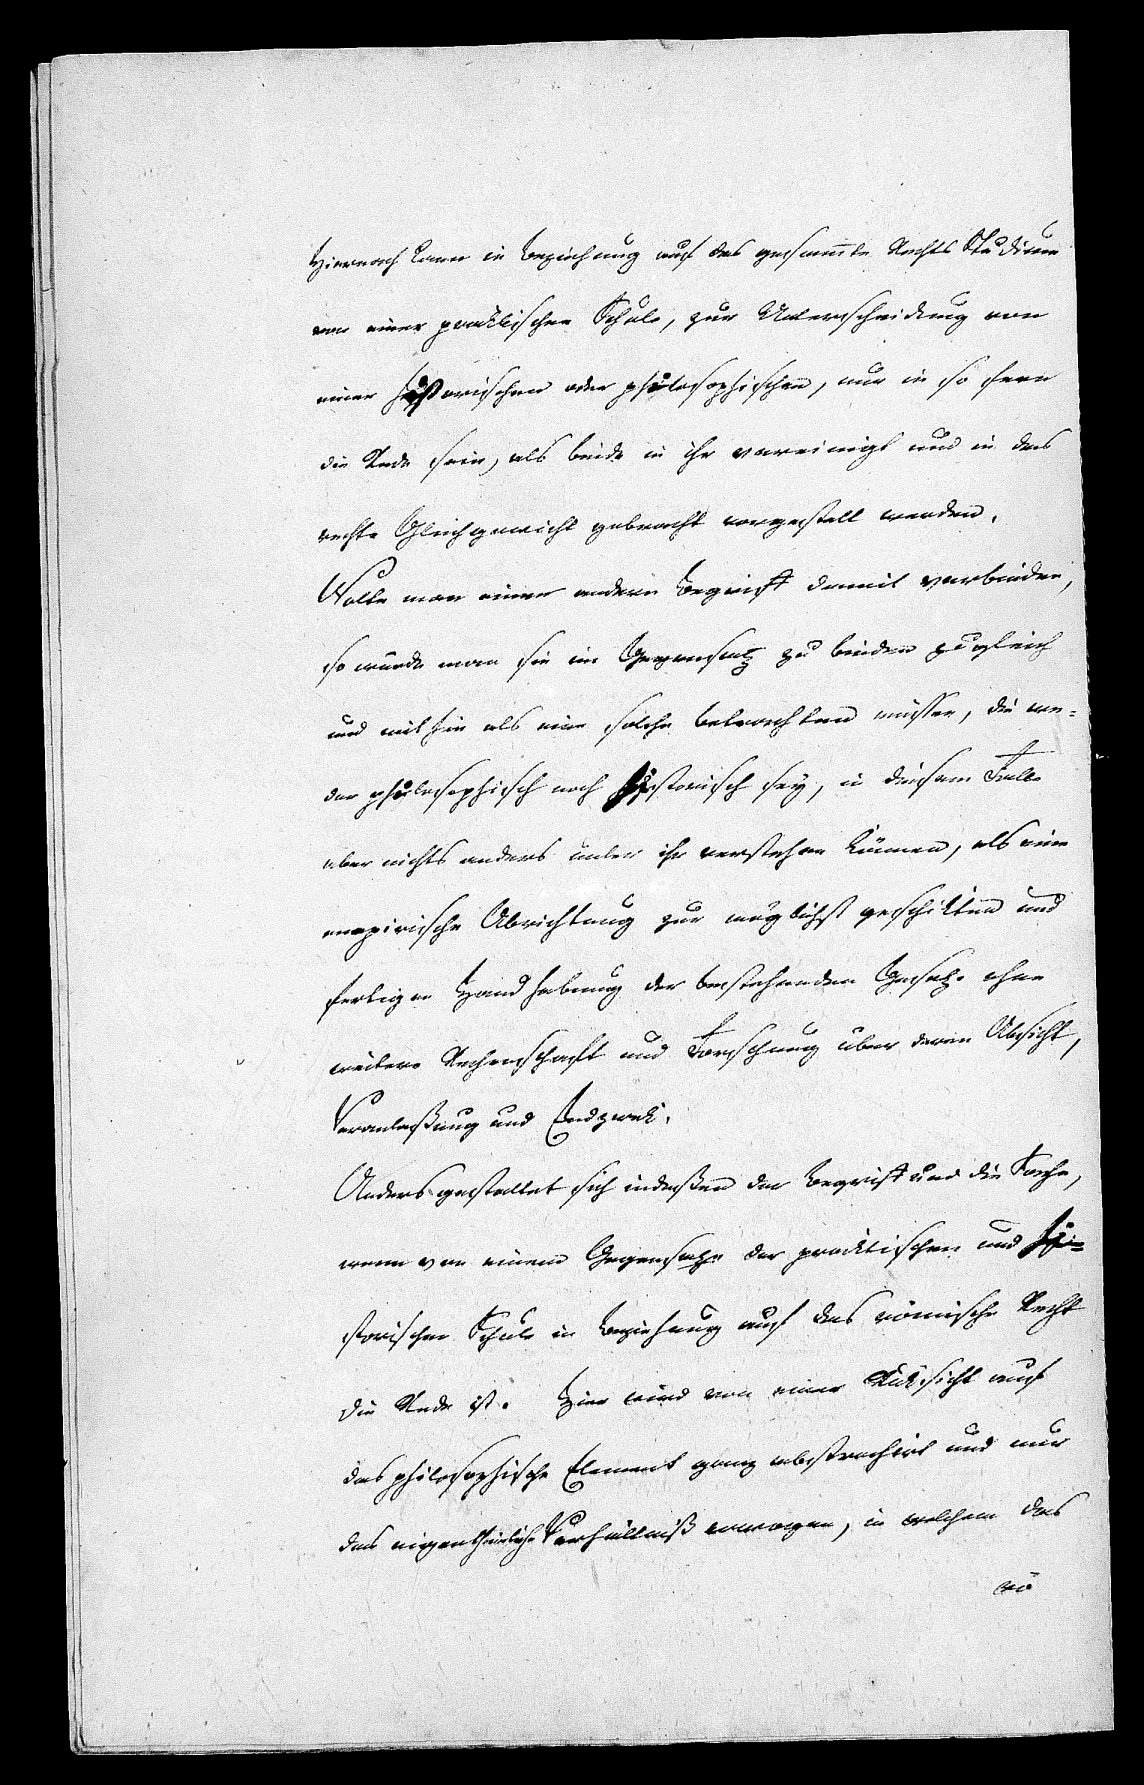 Hiernach kann in Beziehung auf das gesam̄te Rechts Studium
von einer praktischen Schule, zur Unterscheidung von
einer historischen oder philosophischen, nur in so fern
die Rede sein, als beide in ihr vereinigt und in das
rechte Gleichgewicht gebracht vorgestellt werden.
Wollte man einen andern Begriff damit verbinden,
so würde man sie im Gegensatz zu beiden zugleich
und mithin als eine solche betrachten müssen, die we=
der philosophisch noch historisch sey, in diesem Falle
aber nichts anders unter ihr verstehen können, als eine
empirische Abrichtung zur möglichst geschikten und
fertigen Handhabung der bestehenden Gesetze ohne
weitere Rechenschaft und Forschung über deren Absicht,
Veranlaßung und Endzwek.
Anders gestaltet sich indeßen der Begriff und die Sache,
wenn von einem Gegensatze der practischen und hi=
storischen Schule in Beziehung auf das römische Recht
die Rede ist. Hier wird von einer Rüksicht auf
das philosophische Element ganz abstrahirt und nur
das eigenthümliche Verhältniß erwogen, in welchem das
rö